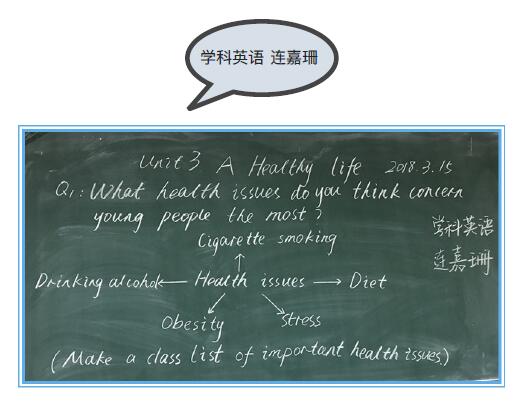 学科英语 连嘉珊
Unit 3 A Healthy life 2018.3.15
Q1: What health issues do you think concern
young people the most?
学科英语
连嘉珊
Cigarette smoking
Drinking alcohol ← Health issues → Diet
Obesity Stress
(Make a class list of important health issues.)